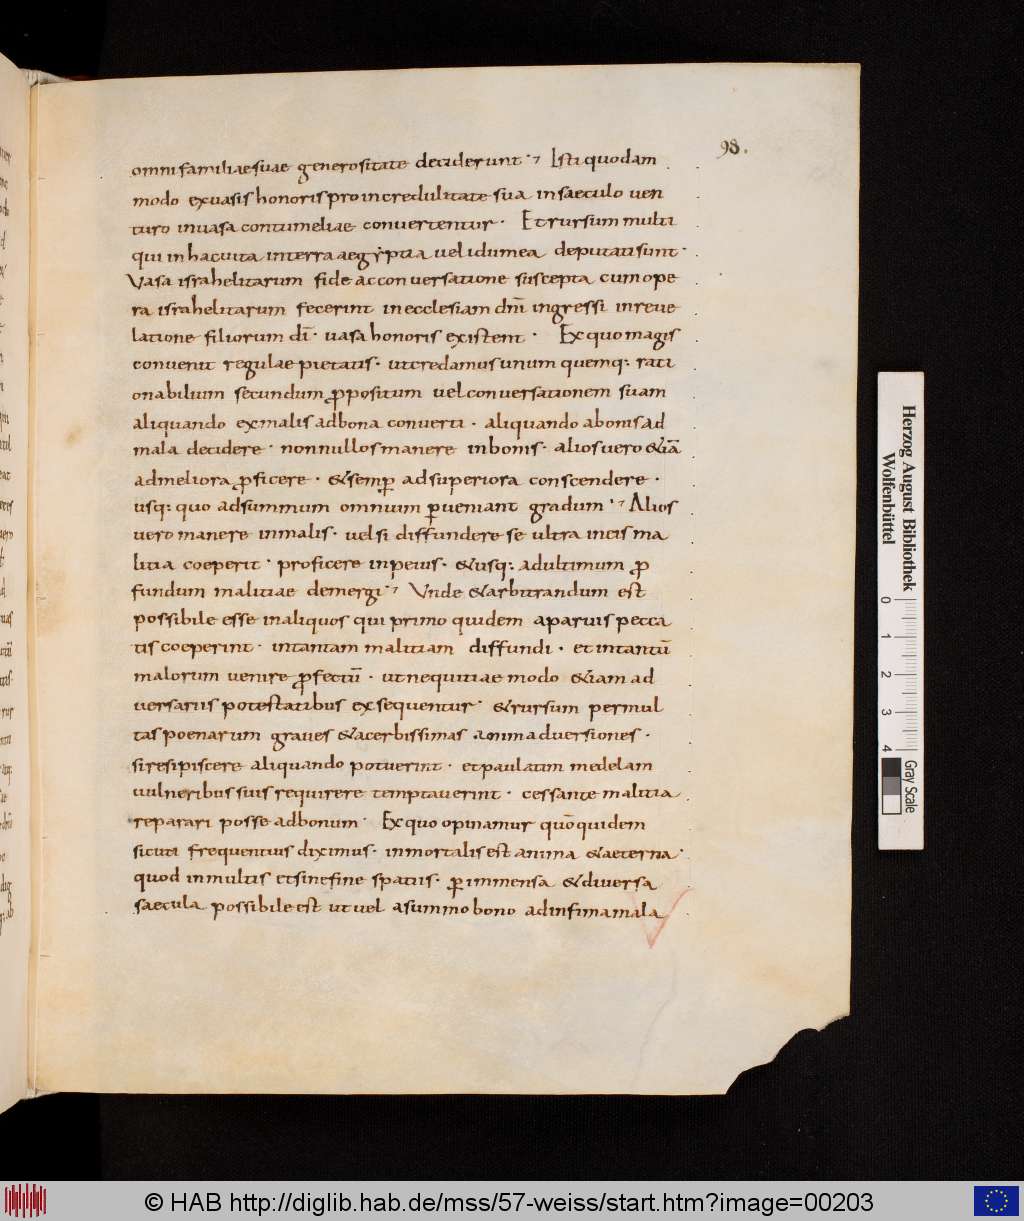 98.
omni familiae suae generositate deciderunt · Isti quodam
modo ex uasis honoris pro incredulitate sua in saeculo uen
turo in uasa contumeliae conuertentur · Et rursum multi
qui in hac uita in terra aegyptia uel idumea deputati sunt ·
Vasa israhelitarum fide ac conuersatione suscepta cum ope
ra israhelitarum fecerint in ecclesiam dnī ingressi in reue
latione filiorum dī · uasa honoris existent · Ex quo magis
conuenit regulae pietatis · ut credamus unum quemq: rati
onabilium secundum p̄positum uel conuersationem suam
aliquando ex malis ad bona conuerti · aliquando a bonis ad
mala decidere · nonnullos manere in bonis · alios uero &iā
ad meliora p̄ficere · & semp̱ ad superiora conscendere ·
usq: quo ad summum omnium p̱ueniant gradum · Alios
uero manere in malis · uel si diffundere se ultra in eis ma
litia coeperit · proficere in peius · & usq: ad ultimum p̄
fundum malitiae demergi · Vnde & arbitrandum est
possibile esse in aliquos qui primo quidem a paruis pecca
tis coeperint · in tantam malitiam diffundi · et in tantū
malorum uenire p̄fectū · ut nequitiae modo &iam ad
uersariis potestatibus exsequentur · & rursum per mul
tas poenarum graues & acerbissimas animaduersiones ·
si resipiscere aliquando potuerint · et paulatim medelam
uulneribus suis requirere temptauerint · cessante malitia
reparari posse ad bonum · Ex quo opinamur quō quidem
sicuti frequentius diximus · inmortalis est anima & aeterna ·
quod in multis et sine fine spatiis · p̱ immensa & diuersa
saecula possibile est ut uel a summo bono ad infima mala
Herzog August Bibliothek
Wolfenbüttel
0 1 2 3 4
Gray Scale
© HAB http://diglib.hab.de/mss/57-weiss/start.htm?image=00203